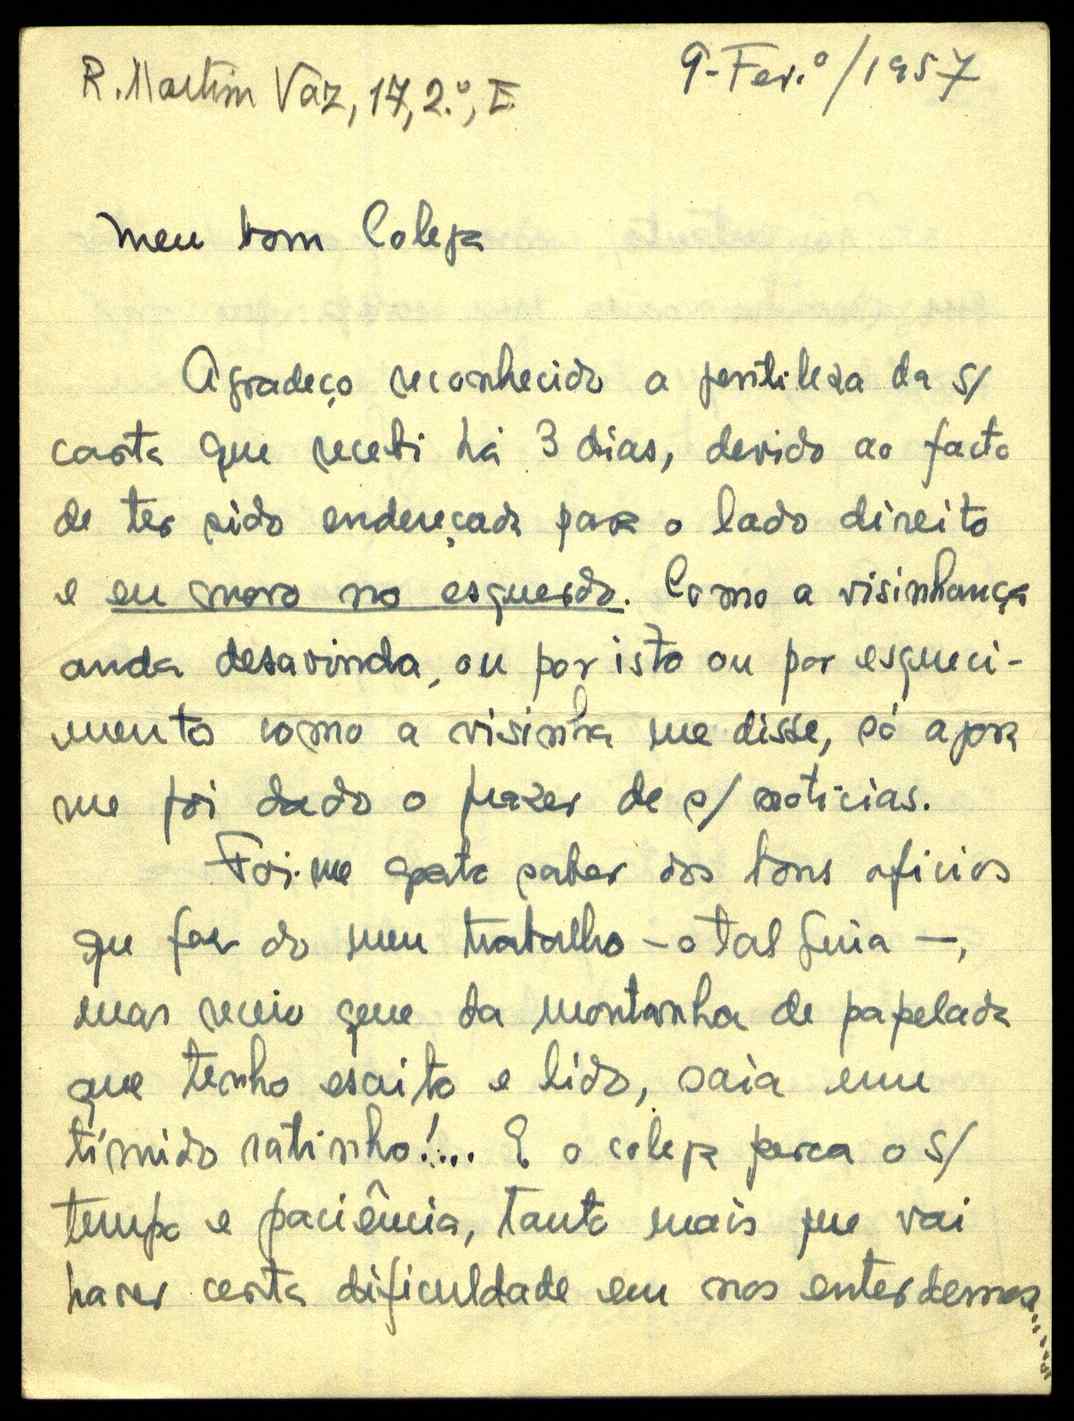 R. Martim Vaz, 17, 2.º, E.
9-Fev.º/1957
Meu bom Colega
Agradeço reconhecido a gentileza da s/
carta que recebi há 3 dias, devido ao facto
de ter sido endereçada para o lado direito
e eu moro no esquerdo. Como a visinhança
anda desavinda, ou por isto ou por esqueci-
mento como a visinha me disse, só agora
me foi dado o prazer de s/ noticias.
Foi-me grato saber dos bons oficios
que faz do meu trabalho - o tal Guia -,
mas receio que da montanha de papelada
que tenho escrito e lido, saia um
tímido ratinho!... E o colega perca o s/
tempo e paciência, tanto mais que vai
haver certa dificuldade em nos entendermos.....